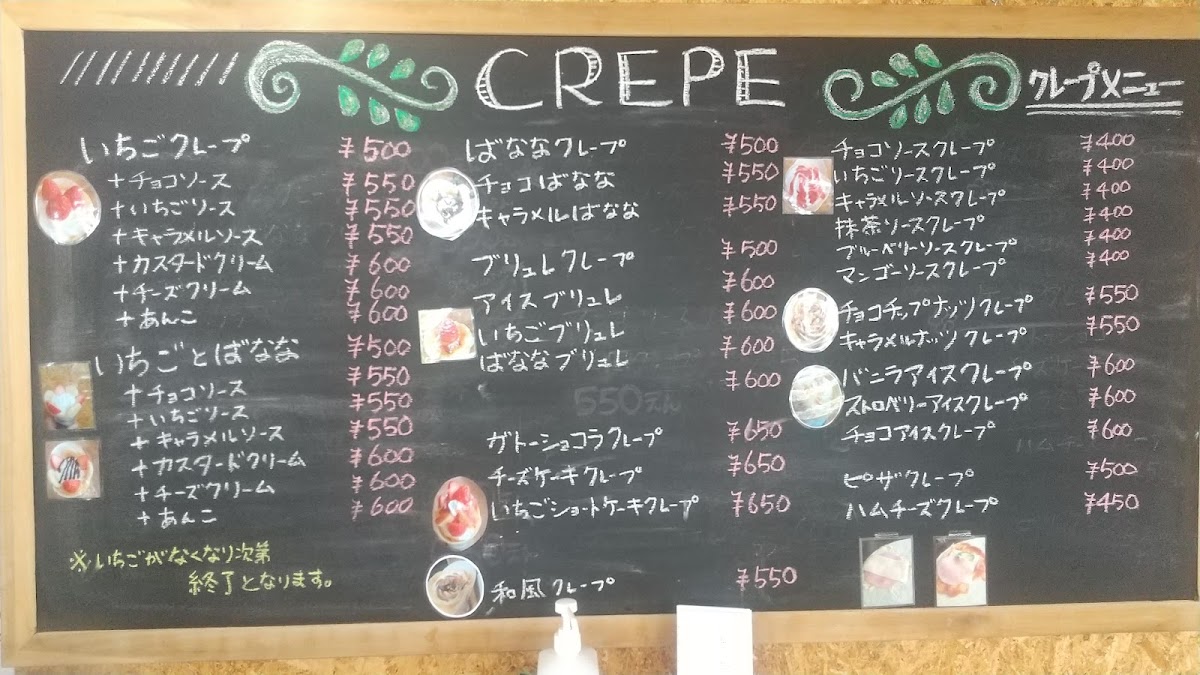 CREPE
クレープメニュー
いちごクレープ ¥500
+チョコソース ¥550
+いちごソース ¥550
+キャラメルソース ¥550
+カスタードクリーム ¥600
+チーズクリーム ¥600
+あんこ ¥600
いちごとばなな ¥500
+チョコソース ¥550
+いちごソース ¥550
+キャラメルソース ¥550
+カスタードクリーム ¥600
+チーズクリーム ¥600
+あんこ ¥600
※いちごがなくなり次第
終了となります。
ばななクレープ ¥500
チョコばなな ¥550
キャラメルばなな ¥550
ブリュレクレープ ¥500
アイスブリュレ ¥600
いちごブリュレ ¥600
ばななブリュレ ¥600
¥600
550えん
ガトーショコラクレープ ¥650
チーズケーキクレープ ¥650
いちごショートケーキクレープ ¥650
和風クレープ ¥550
チョコソースクレープ ¥400
いちごソースクレープ ¥400
キャラメルソースクレープ ¥400
抹茶ソースクレープ ¥400
ブルーベリーソースクレープ ¥400
マンゴーソースクレープ ¥400
チョコチップナッツクレープ ¥550
キャラメルナッツクレープ ¥550
バニラアイスクレープ ¥600
ストロベリーアイスクレープ ¥600
チョコアイスクレープ ¥600
ピザクレープ ¥500
ハムチーズクレープ ¥450